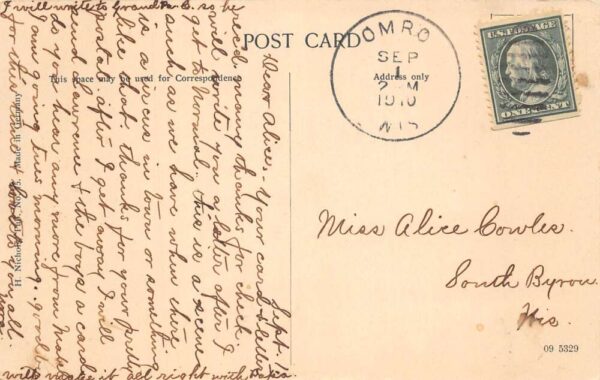 I will write to Grandpa C. so he
will make it all right with Papa.
POST CARD
This space may be used for Correspondence
Address only
H. Nichols, Pub., No.
Made in Germany
OMRO
SEP
1
2 M
1910
WIS
U.S. POSTAGE
ONE CENT
Sept. 1.
Dear Alice, - Your card & letter
recd. many thanks for check
will write you a later after I
get to Normal. This is a scene
such as we have when there
is a circus in town or something
like that. thanks for your pretty
postal. after I get away I will
send Lawrence & the boys a card
do you hear any more from Mabel
I am going tues morning. good by
for this time & love to you all
Miss Alice Cowles.
South Byron
Wis.
09 5329